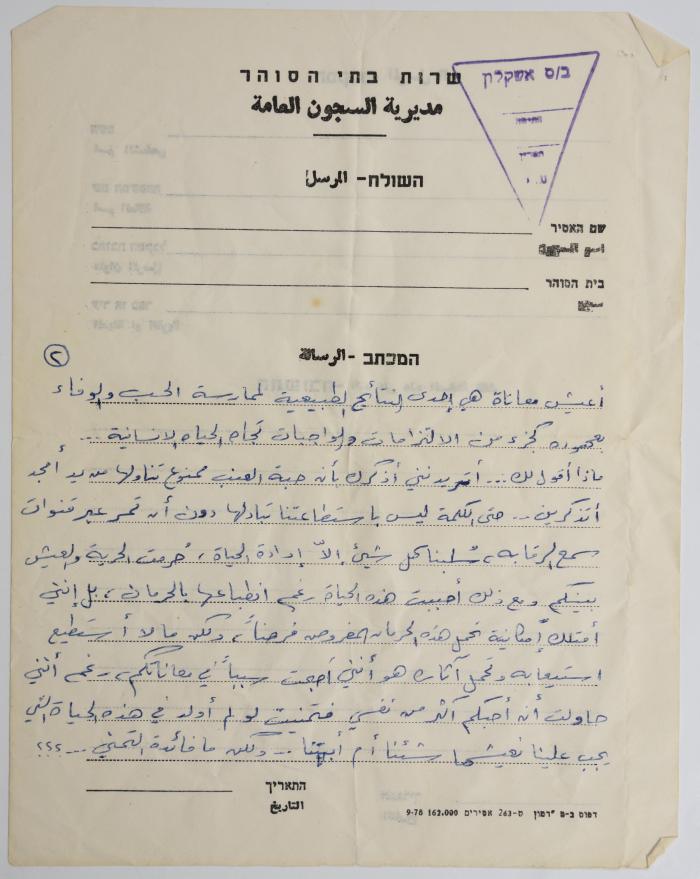 שרות בתי הסוהר
مديرية السجون العامة
ב/ס אשקלון
חתימה
תאריך
השולח - المرسل
שם האסיר
اسم السجين
בית הסוהר
سجن
המכתב - الرسالة
٢
أعيش معاناة هي إحدى النتائج الطبيعية لممارسة الحب والوفاء
بعهوده كجزء من الالتزامات والواجبات تجاه الحياة الانسانية ...
ماذا أقول لك ... أتريدنني أذكرك بأن حبة العنب ممنوع تناولها من يد أمجد
أتذكرين .. حتى الكلمة ليس باستطاعتنا تبادلها دون أن تمر عبر قنوات
سمع الرقابه، سُلبنا كل شيئ إلاّ إرادة الحياة، حُرمت الحرية والعيش
بينكم ومع ذلك أحببت هذه الحياة رغم انطباعها بالحرمان، بل إنني
أمتلك إمكانية تحمل هذه الحرمان المفروض فرضاً، ولكن ما لا أستطيع
استيعابه وتحمل آثاره هو أنني أصبحت سبباً في معاناتكم، رغم أنني
حاولت أن أحبكم أكثر من نفسي فتمنيت لو لم أولد في هذه الحياة التي
يجب علينا نعيشها شئنا أم أبينا .. ولكن ما فائدة التمني ... ؟؟؟
התאריך
التاريخ
דפוס ב-מ "דמון ס-263 אסירים 162.000 9-78